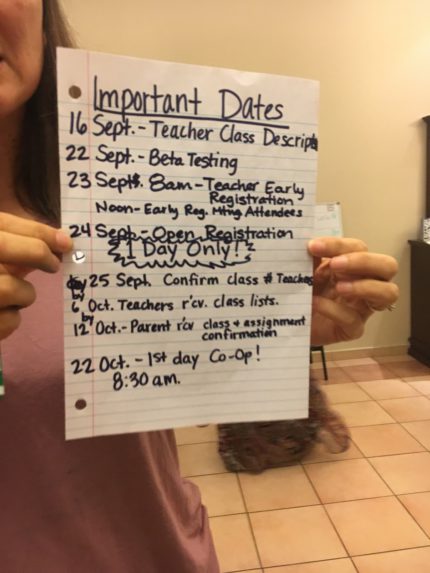 Important Dates
16 Sept. - Teacher Class Descrip
22 Sept. - Beta Testing
23 Sept. 8am - Teacher Early
Registration
Noon - Early Reg. Mtng Attendees
24 Sept. - Open Registration
1 Day Only!
by 25 Sept. Confirm class # Teachers
by
6 Oct. Teachers r'cv. class lists.
by
12 Oct. - Parent r'cv class & assignment
confirmation
22 Oct. - 1st day Co-Op!
8:30 am.